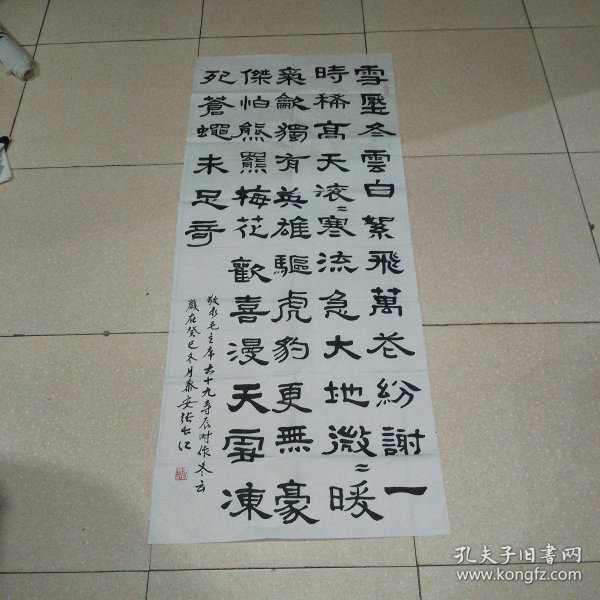 雪壓冬雲白絮飛萬花紛謝一
時稀高天滾〻寒流急大地微〻暖
氣獨有英雄驅虎豹更無豪
傑怕熊羆梅花歡喜漫天雪凍
死蒼蠅未足奇
敬录毛主席六十九寿辰时作冬云
岁在癸巳冬月泰安张江
孔夫子旧书网
www.kongfz.com